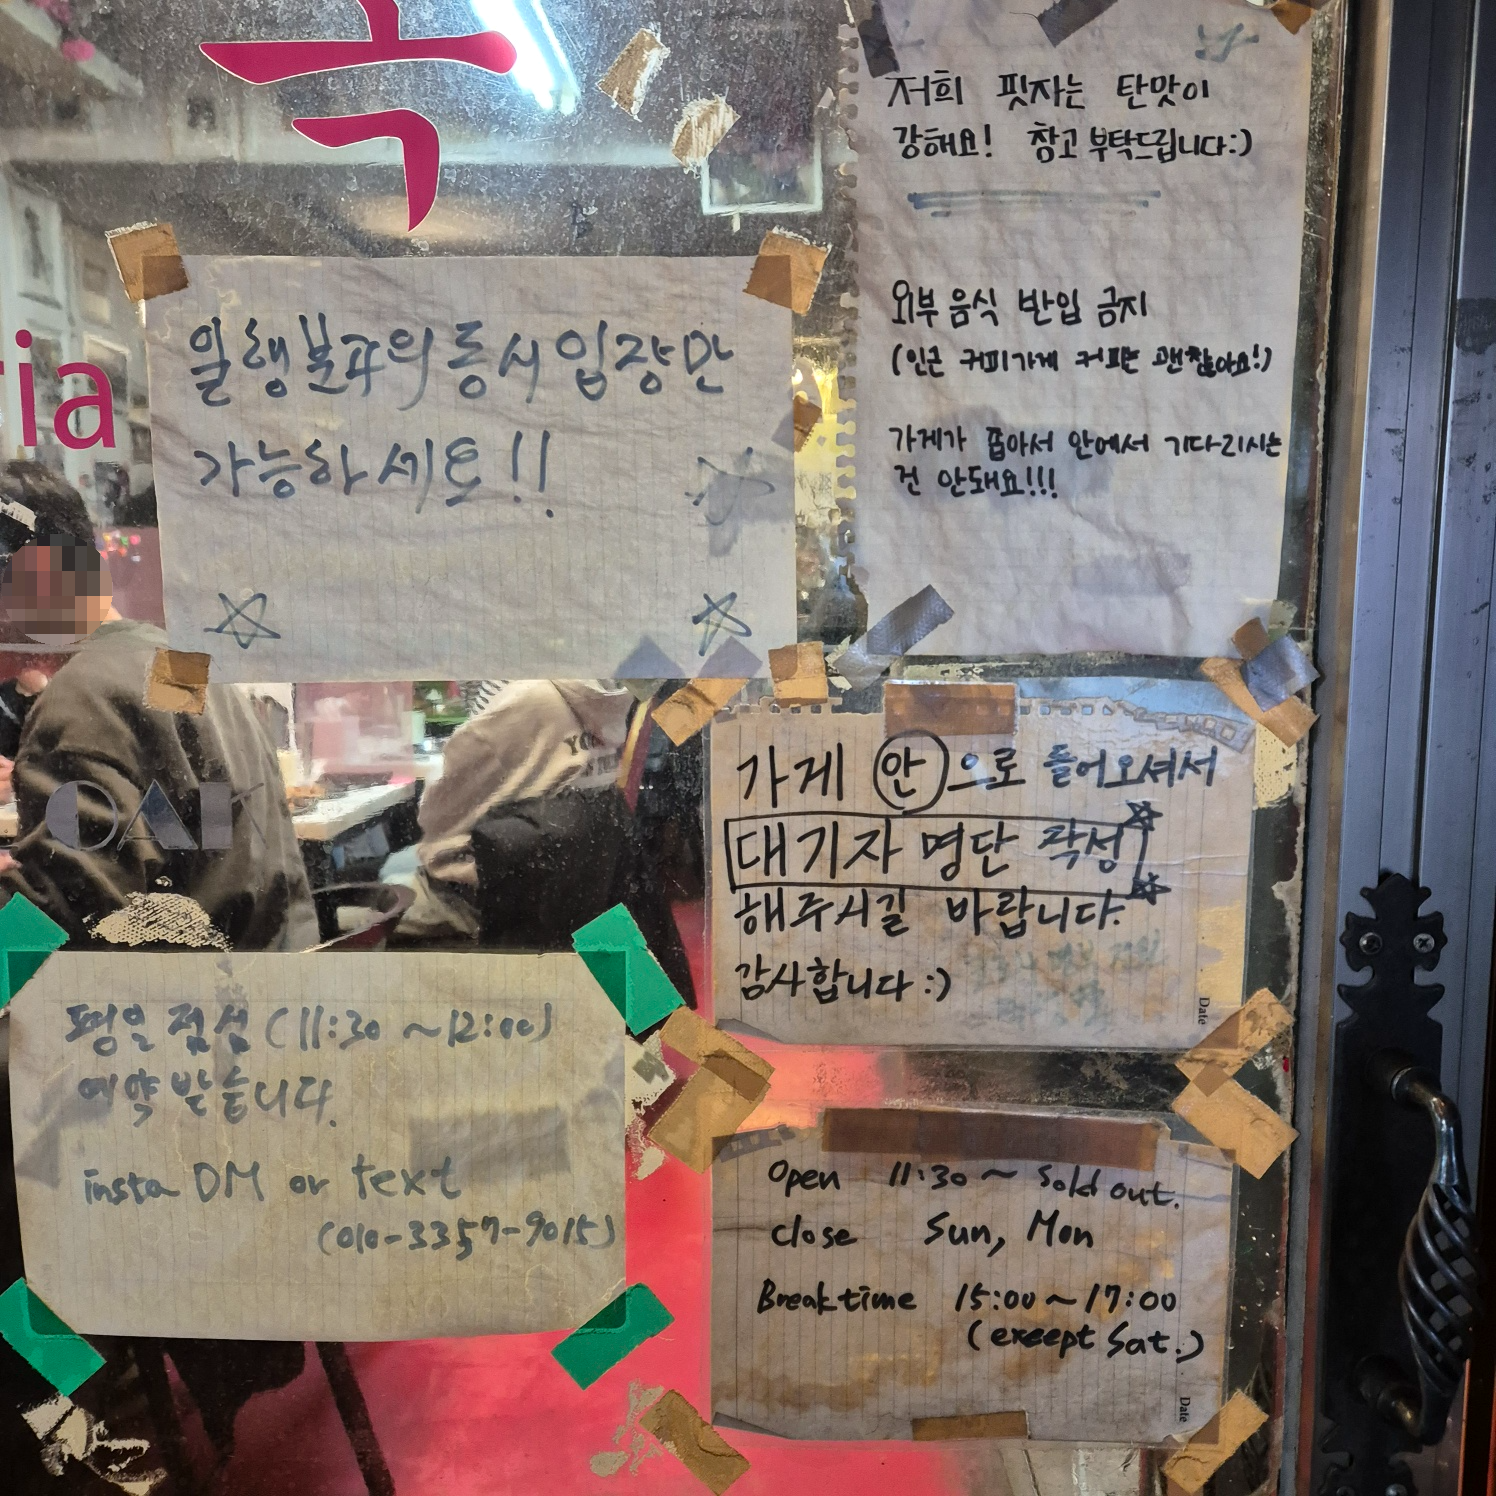 국
ria
저희 핏자는 탄맛이
강해요! 참고 부탁드립니다:)
외부 음식 반입 금지
(인근 커피가게 커피는 괜찮아요!)
가게가 좁아서 안에서 기다리시는
건 안돼요!!!
일행분과의 동시 입장만
가능하세요!!
가게 안으로 들어오셔서
대기자 명단 작성
해주시길 바랍니다.
감사합니다 :)
Date
평일 점심 (11:30 ~12:00)
예약 받습니다.
insta DM or text
(010-3357-9015)
Open 11:30 ~ Sold out.
Close Sun, Mon
Break time 15:00 ~ 17:00
(except Sat.)
Date